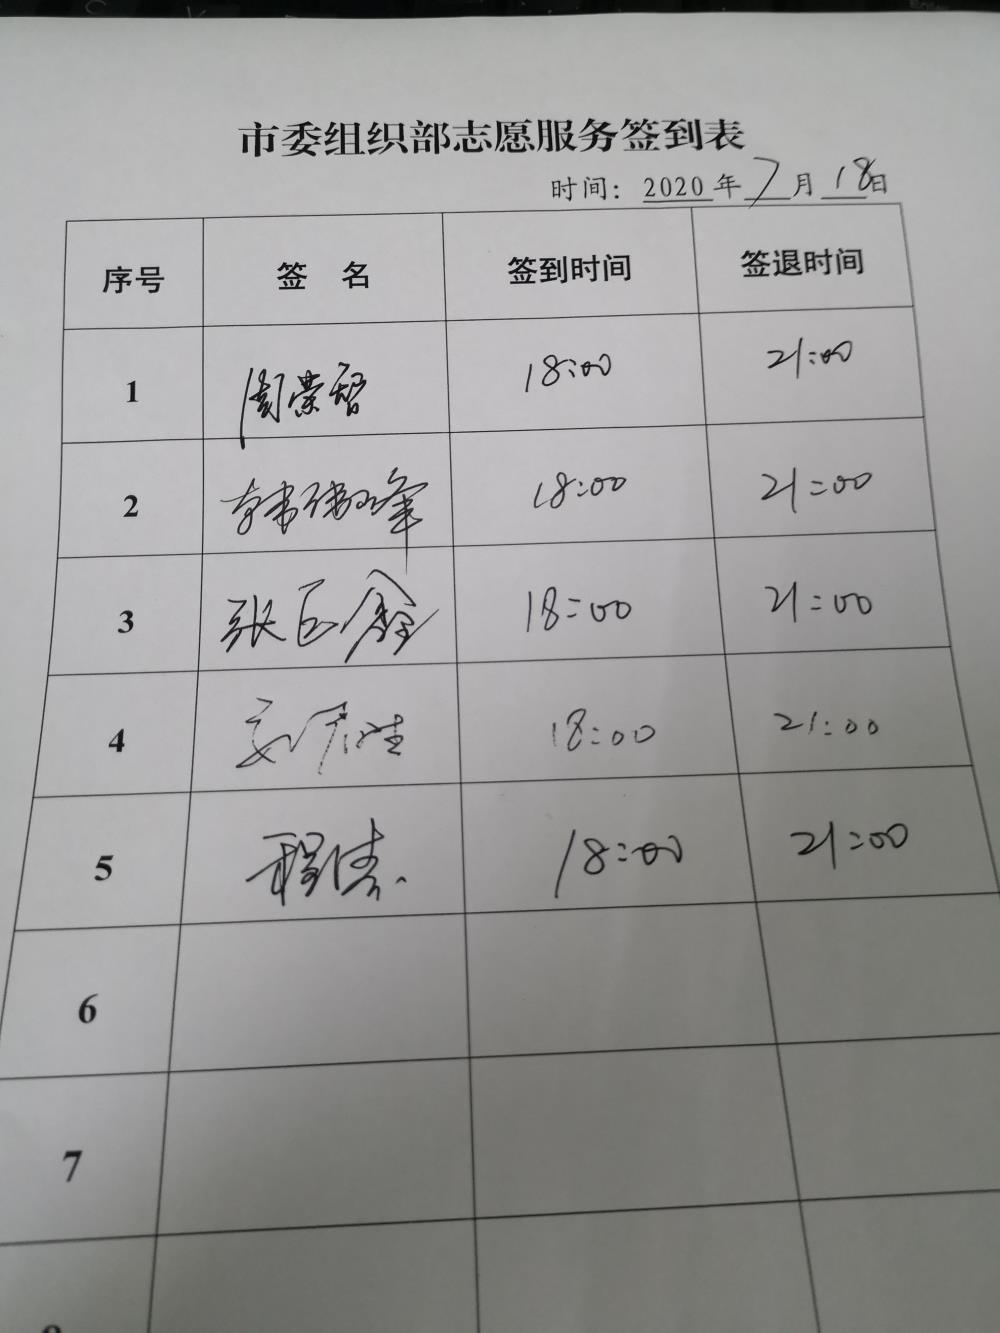 市委组织部志愿服务签到表
时间：2020年7月18日
序号 签 名 签到时间 签退时间
1 周荣智 18:00 21:00
2 韩伟峰 18:00 21:00
3 张巨鑫 18:00 21:00
4 18:00 21:00
5 程倩 18:00 21:00
6
7